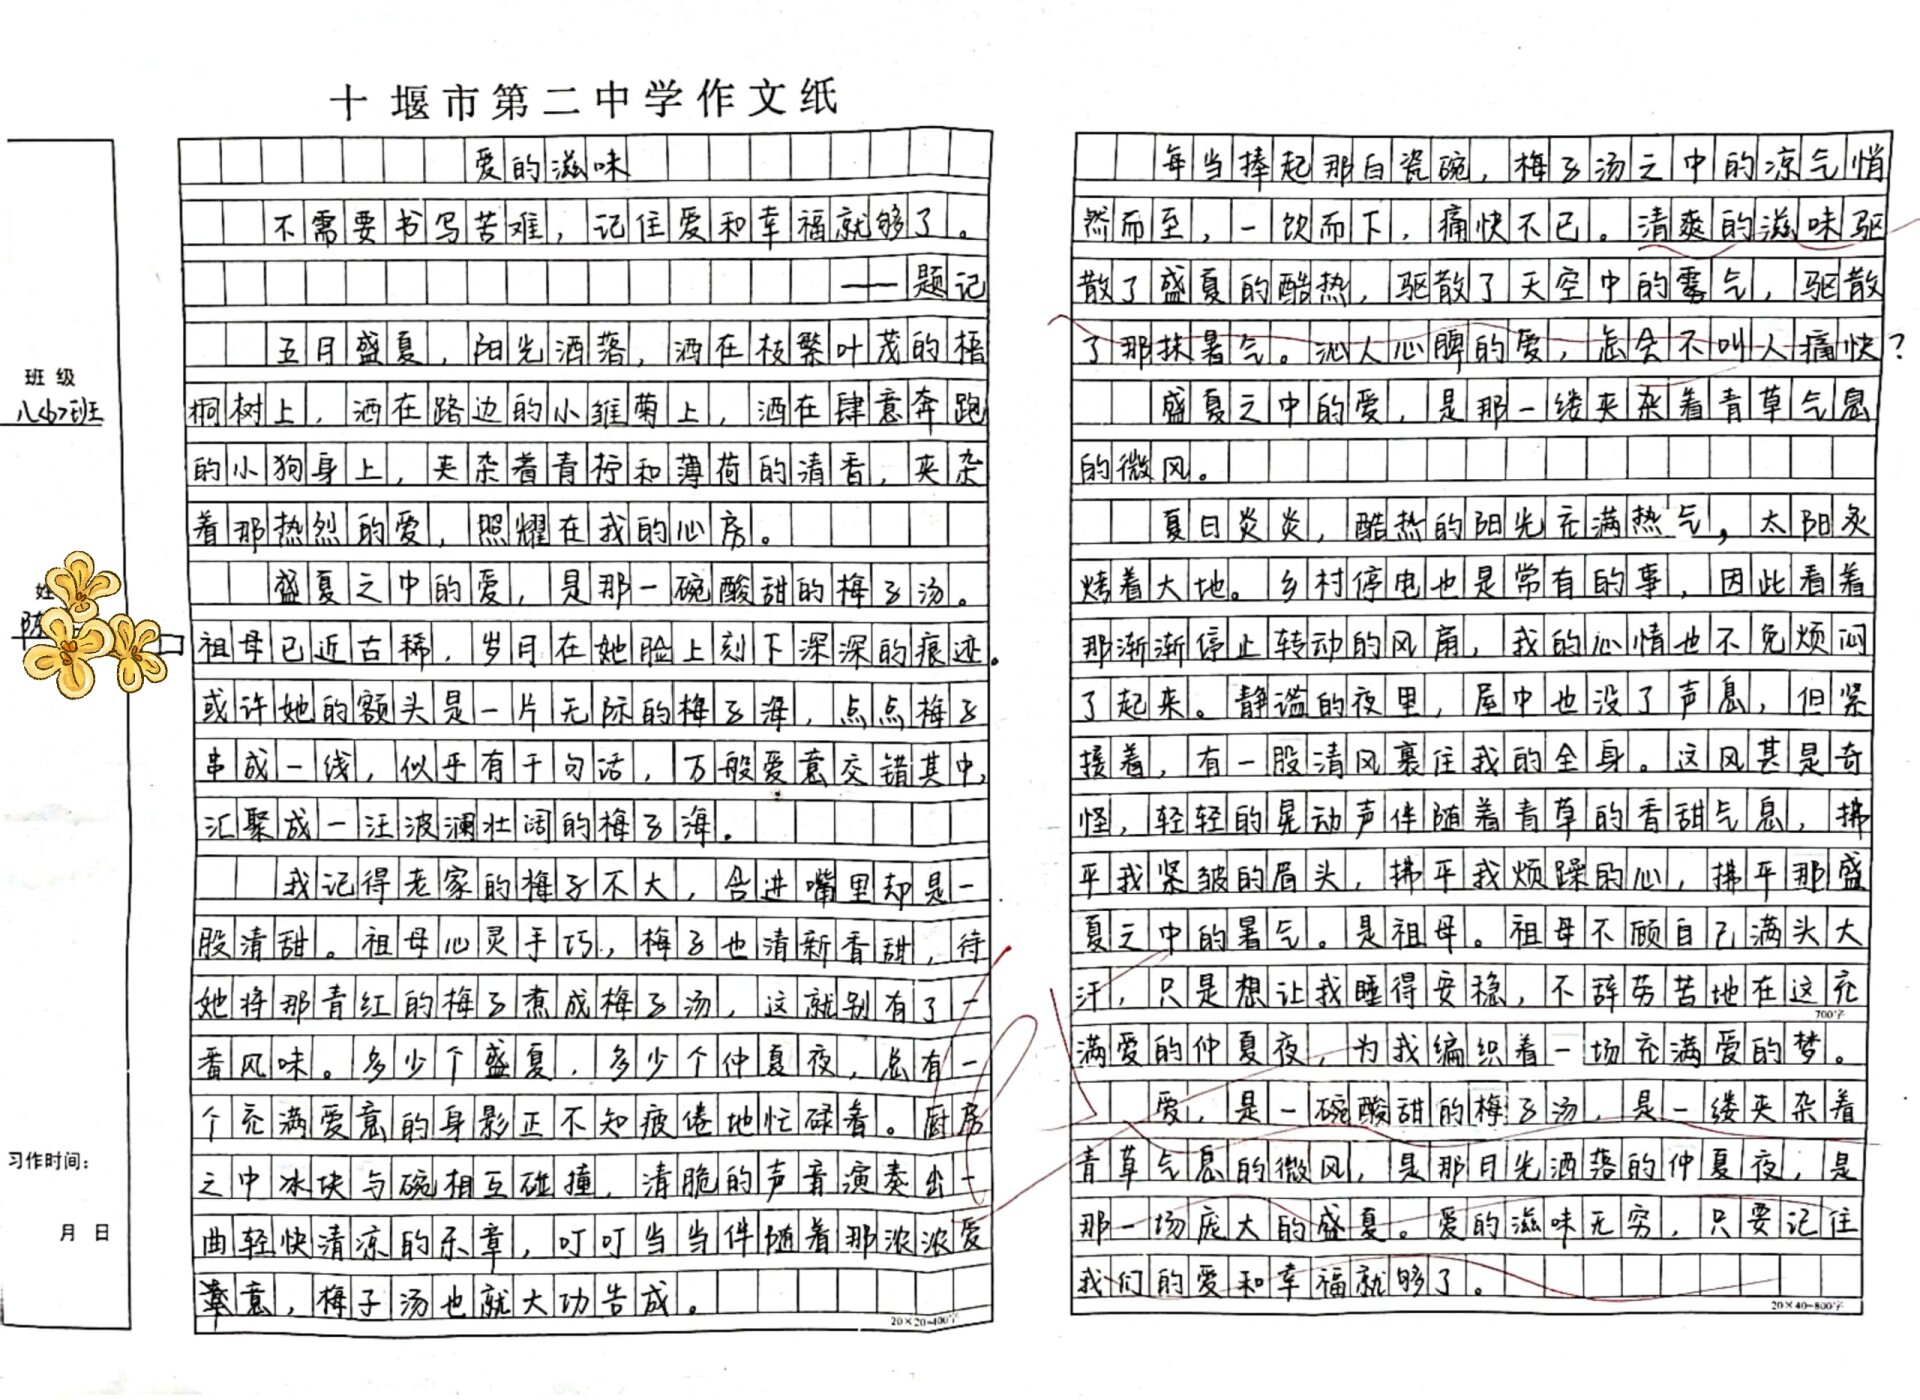 十堰市第二中学作文纸
班级
八<6>班
姓
陈
习作时间：
月 日
爱的滋味
不需要书写苦难，记住爱和幸福就够了。
——题记
五月盛夏，阳光洒落，洒在枝繁叶茂的梧
桐树上，洒在路边的小雏菊上，洒在肆意奔跑
的小狗身上，夹杂着青柠和薄荷的清香，夹杂
着那热烈的爱，照耀在我的心房。
盛夏之中的爱，是那一碗酸甜的梅子汤。
祖母已近古稀，岁月在她脸上刻下深深的痕迹。
或许她的额头是一片无际的梅子海，点点梅子
串成一线，似乎有千句话，万般爱意交错其中，
汇聚成一汪波澜壮阔的梅子海。
我记得老家的梅子不大，含进嘴里却是一
股清甜。祖母心灵手巧，梅子也清新香甜，待
她将那青红的梅子煮成梅子汤，这就别有了一
番风味。多少个盛夏，多少个仲夏夜，总有一
个充满爱意的身影正不知疲倦地忙碌着。厨房
之中冰块与碗相互碰撞，清脆的声音演奏出一
曲轻快清凉的乐章，叮叮当当伴随着那浓浓爱
意，梅子汤也就大功告成。
20×20=400字
每当捧起那白瓷碗，梅子汤之中的凉气悄
然而至，一饮而下，痛快不已。清爽的滋味驱
散了盛夏的酷热，驱散了天空中的雾气，驱散
了那抹暑气。沁人心脾的爱，怎会不叫人痛快？
盛夏之中的爱，是那一缕夹杂着青草气息
的微风。
夏日炎炎，酷热的阳光充满热气，太阳炙
烤着大地。乡村停电也是常有的事，因此看着
那渐渐停止转动的风扇，我的心情也不免烦闷
了起来。静谧的夜里，屋中也没了声息，但紧
接着，有一股清风裹住我的全身。这风甚是奇
怪，轻轻的晃动声伴随着青草的香甜气息，拂
平我紧皱的眉头，拂平我烦躁的心，拂平那盛
夏之中的暑气。是祖母。祖母不顾自己满头大
汗，只是想让我睡得安稳，不辞劳苦地在这充
700字
满爱的仲夏夜，为我编织着一场充满爱的梦。
爱，是一碗酸甜的梅子汤，是一缕夹杂着
青草气息的微风，是那月光洒落的仲夏夜，是
那一场庞大的盛夏。爱的滋味无穷，只要记住
我们的爱和幸福就够了。
20×40=800字